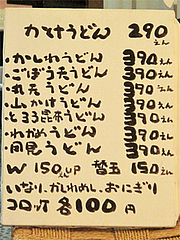 かけうどん 290えん
・かしわうどん 390えん
・ごぼう天うどん 390えん
・丸天うどん 390えん
・山かけうどん 390えん
・とろろ昆布うどん 390えん
・わかめうどん 390えん
・月見うどん 390えん
W 150円UP 替玉 150えん
いなり、かしわめし、おにぎり
コロッケ 各100円